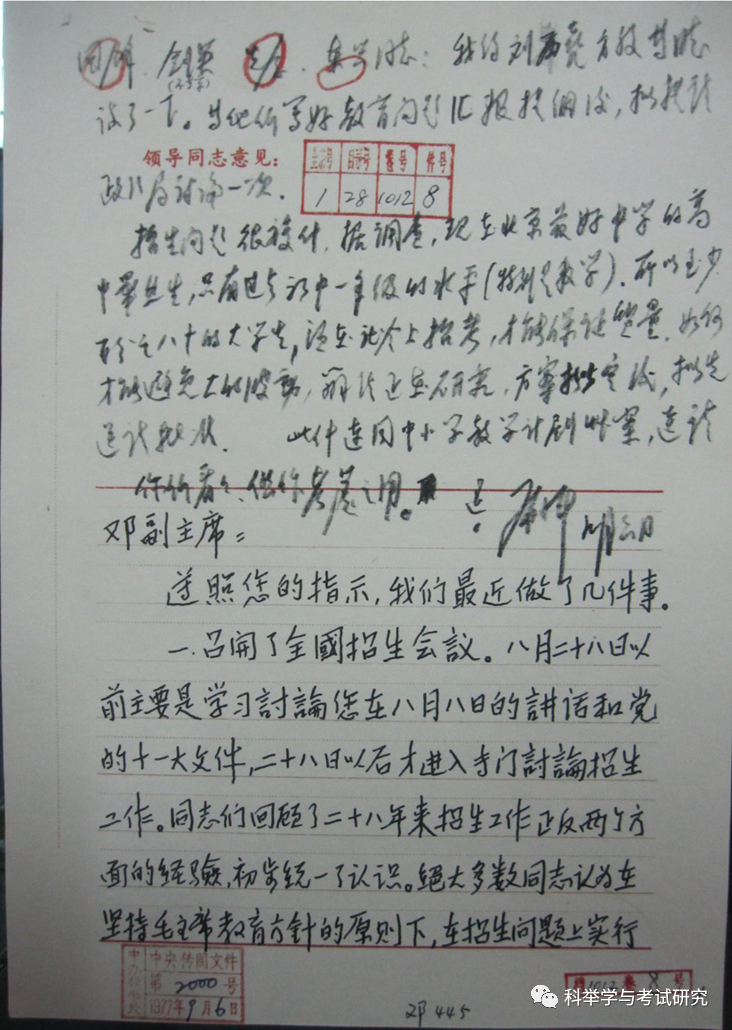 国锋、剑英、先念、东兴同志：我约刘西尧、方毅等同志
谈了一下。当他们写好教育问题汇报提纲后，拟提请
领导同志意见：
全宗号 目录号 卷号 件号
1 28 1012 8
政治局讨论一次。
招生问题很复杂。据调查，现在北京最好中学的高
中毕业生，只有过去初中一年级的水平(特别是数学)。所以至少
百分之八十的大学生，须在社会上招考，才能保证质量。如何
才能避免大的波动，办法正在研究，方案拟出定后，拟先
送请批准。 此件连同中小学教学计划草案，送请
你们看看，供你考虑之用。
邓副主席：
遵照您的指示，我们最近做了几件事。
一、召開了全國招生会議。八月二十八日以
前主要是学习討論您在八月八日的講话和党
的十一大文件，二十八日以后才进入专门討論招生
工作。同志们回顾了二十八年来招生工作正反两个方
面的经驗，初步统一了认识。絕大多数同志认为在
坚持毛主席教育方針的原则下，在招生问题上实行
中央传阅文件
第 2000 号
1977年9月6日
1012 卷 8 号
邓445
科举学与考试研究